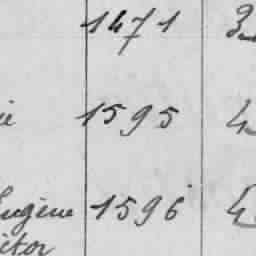 1471 3
ie 1595 4
Eugène 1596 4
ictor